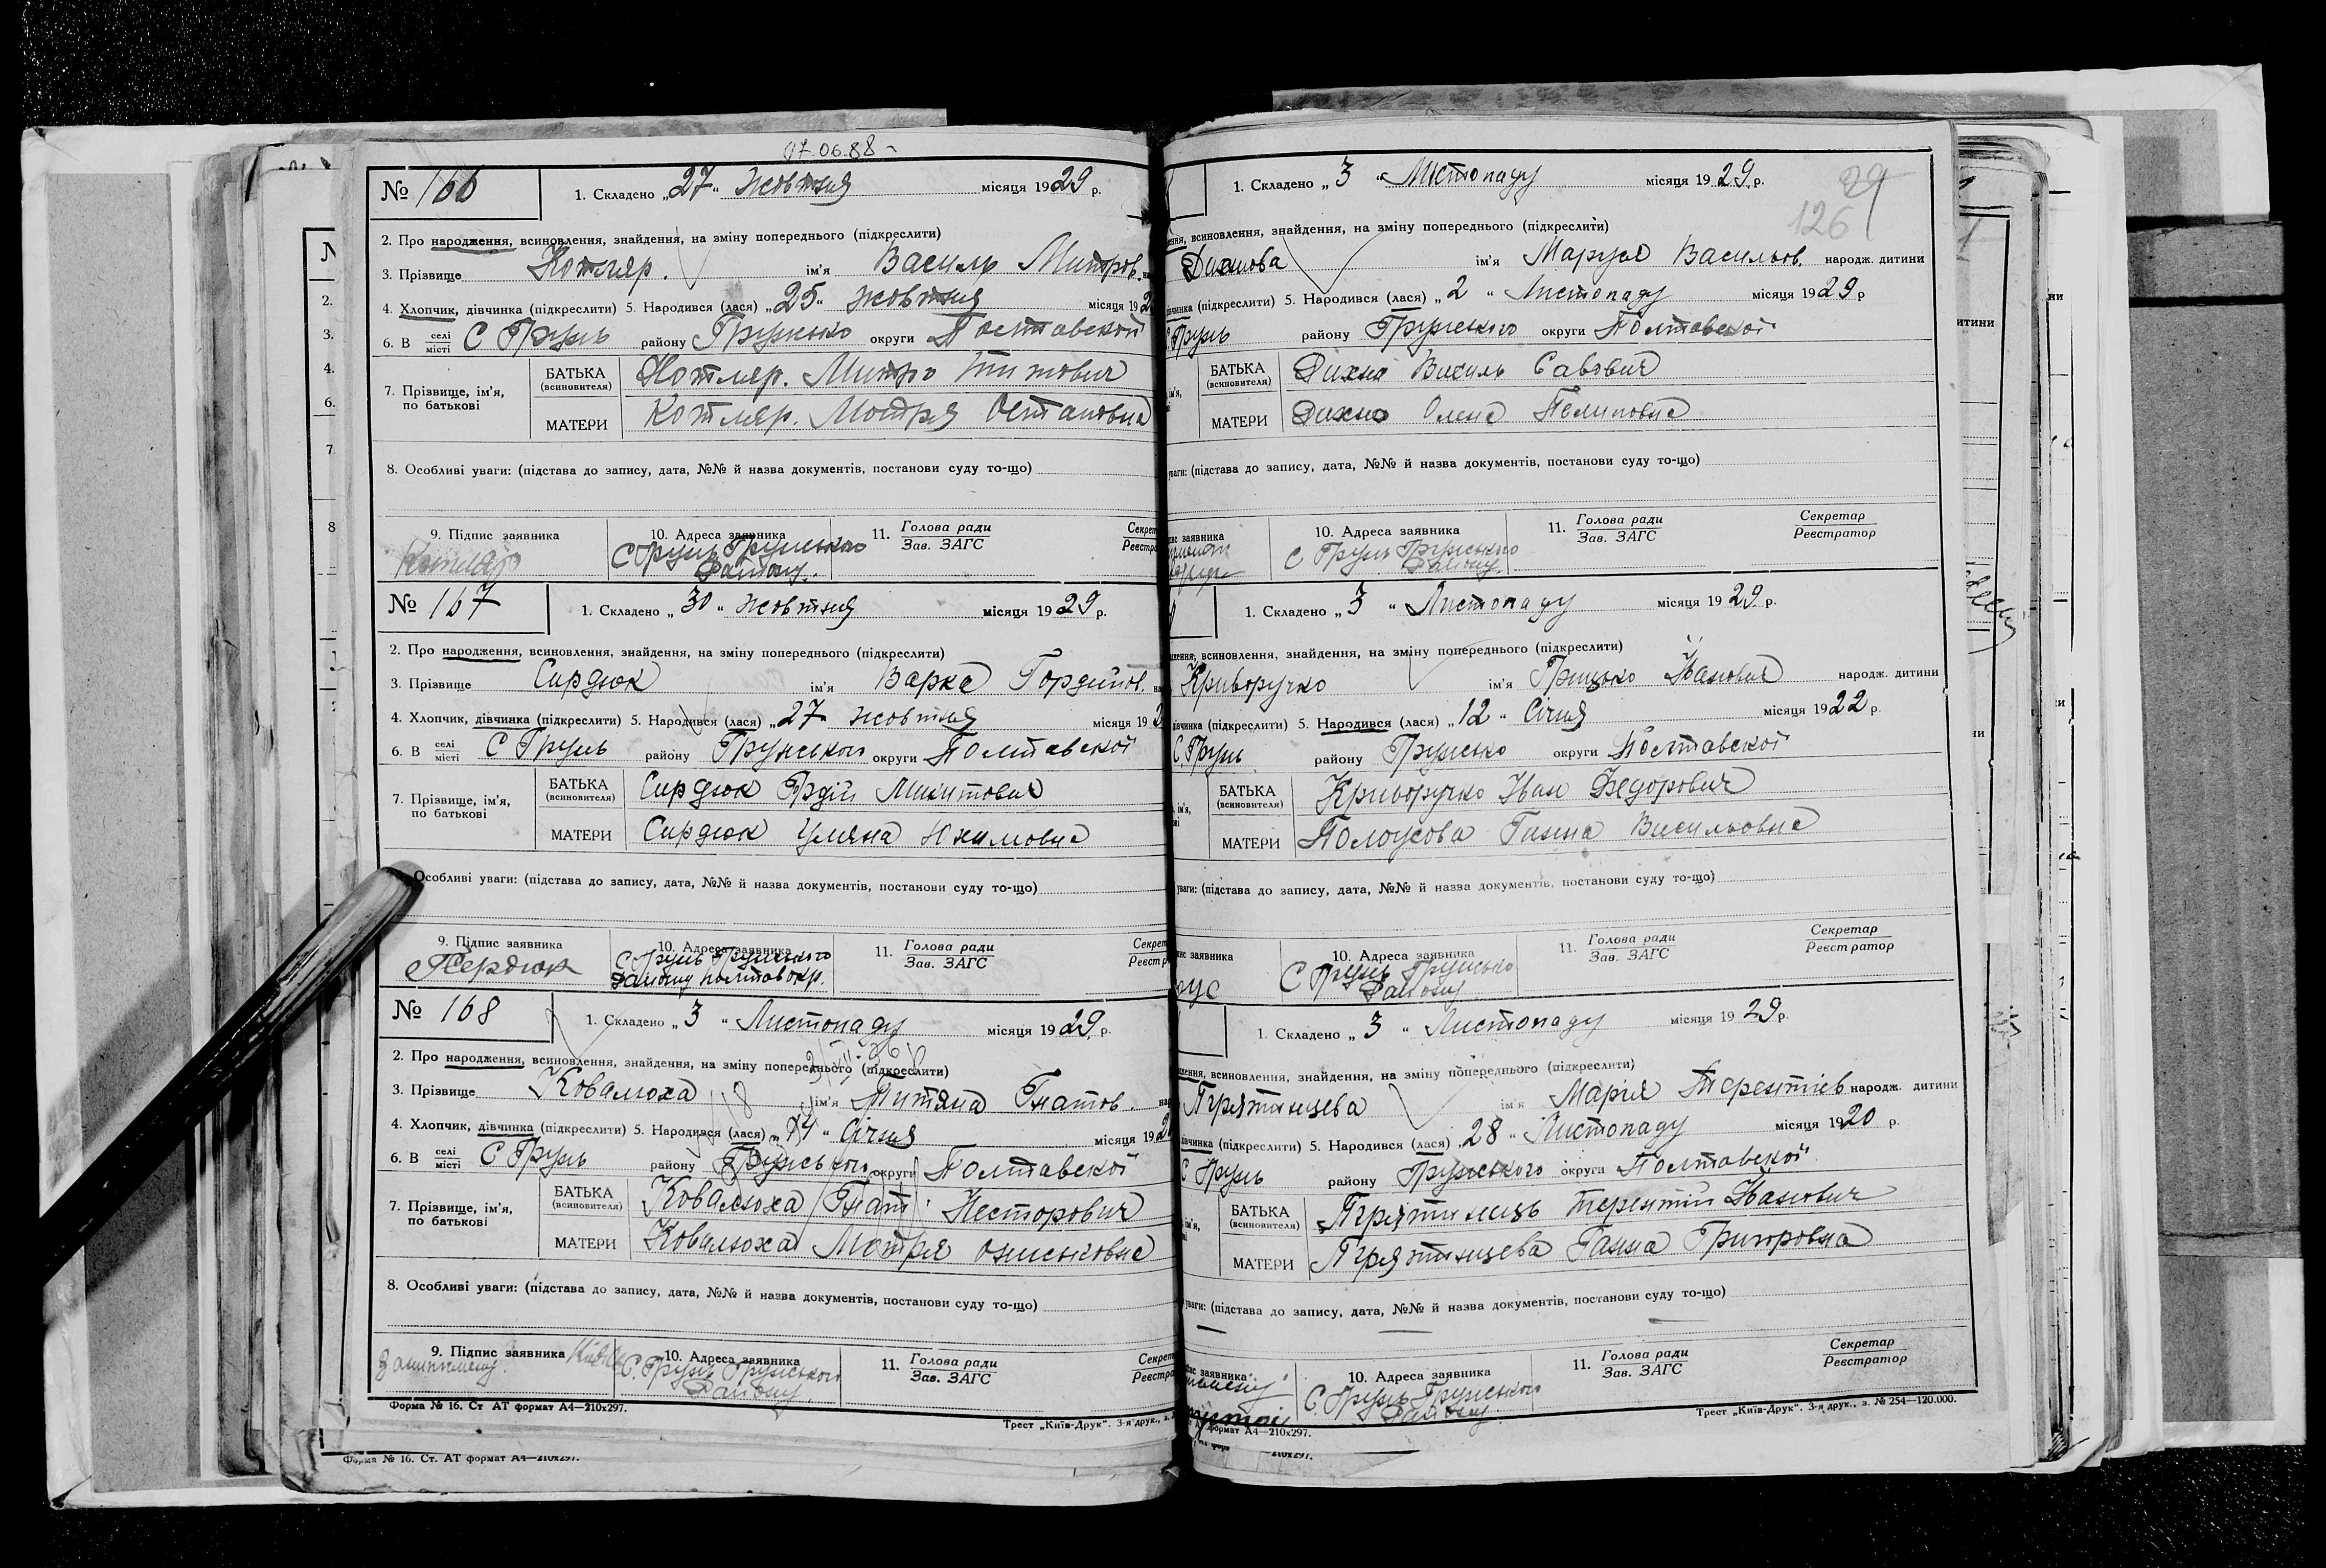 07.06.88
№ 166
1. Складено „27“ жовтня місяця 1929 р.
2. Про народження, всиновлення, знайдення, на зміну попереднього (підкреслити)
3. Прізвище Котляр. ім'я Василь Митров.
4. Хлопчик, дівчинка (підкреслити) 5. Народився (лася) „25“ жовтня місяця 192
6. В селі місті С Грунь району Грунсько округи Полтавской
7. Прізвище, ім'я, по батькові
БАТЬКА (всиновителя) Котляр. Митро Титович
МАТЕРИ Котляр. Мотря Остаповна
8. Особливі уваги: (підстава до запису, дата, №№ й назва документів, постанови суду то-що)
9. Підпис заявника
10. Адреса заявника С Грунь Грунського Району.
11. Голова ради Зав. ЗАГС
№ 167
1. Складено „30“ жовтня місяця 1929 р.
2. Про народження, всиновлення, знайдення, на зміну попереднього (підкреслити)
3. Прізвище Сирдюк ім'я Варка Гордійов.
4. Хлопчик, дівчинка (підкреслити) 5. Народився (лася) „27 жовтня місяця 19
6. В селі місті С Грунь району Грунського округи Полтавской
7. Прізвище, ім'я, по батькові
БАТЬКА (всиновителя) Сирдюк Грдій Микитович
МАТЕРИ Сирдюк Уляна Юхимовна
Особливі уваги: (підстава до запису, дата, №№ й назва документів, постанови суду то-що)
9. Підпис заявника Сердюк
10. Адреса заявника С Грунь Грунського Району полтавокр.
11. Голова ради Зав. ЗАГС
№ 168
1. Складено „3“ Листопаду місяця 1929 р.
2. Про народження, всиновлення, знайдення, на зміну попереднього (підкреслити)
3. Прізвище Ковалюха ім'я Титяна Гнатов.
4. Хлопчик, дівчинка (підкреслити) 5. Народився (лася) „14“ Січня місяця 192
6. В селі місті С Грунь району Грунського округи Полтавской
7. Прізвище, ім'я, по батькові
БАТЬКА (всиновителя) Ковалюха Гнат Несторович
МАТЕРИ Ковалюха Мотря Ониськовна
8. Особливі уваги: (підстава до запису, дата, №№ й назва документів, постанови суду то-що)
9. Підпис заявника
10. Адреса заявника С. Грунь Грунського Району
11. Голова ради Зав. ЗАГС
Форма № 16. Ст АТ формат А4—210x297.
Трест „Київ-Друк“. 3-я друк., з.
Форма № 16. Ст. АТ формат А4—210x297.
1. Складено „3“ Листопаду місяця 1929 р.
29
126
всиновлення, знайдення, на зміну попереднього (підкреслити)
Дихнова ім'я Маруся Васильов. народж. дитини
(підкреслити) 5. Народився (лася) „2“ Листопаду місяця 1929 р
Грунь району Грунського округи Полтавской
БАТЬКА (всиновителя) Дихно Василь Савович
МАТЕРИ Дихно Олена Пелиповна
уваги: (підстава до запису, дата, №№ й назва документів, постанови суду то-що)
заявника
10. Адреса заявника С Грунь Грунського Району.
11. Голова ради Зав. ЗАГС
Секретар Реєстратор
1. Складено „3“ Листопаду місяця 1929 р.
всиновлення, знайдення, на зміну попереднього (підкреслити)
Криворучко ім'я Грицько Іванович народж. дитини
(підкреслити) 5. Народився (лася) „12“ Січня місяця 1922 р.
С Грунь району Грунсько округи Полтавской
БАТЬКА (всиновителя) Криворучко Іван Федорович
МАТЕРИ Полоусова Ганна Васильовна
уваги: (підстава до запису, дата, №№ й назва документів, постанови суду то-що)
заявника
10. Адреса заявника С Грунь Грунсько Району
11. Голова ради Зав. ЗАГС
Секретар Реєстратор
1. Складено „3“ Листопаду місяця 1929 р.
всиновлення, знайдення, на зміну попереднього (підкреслити)
Пірятинцева ім'я Марія Терентіев народж. дитини
(підкреслити) 5. Народився (лася) „28“ Листопаду місяця 1920 р.
С Грунь району Грунського округи Полтавской
БАТЬКА (всиновителя) Пірятинець Терентій Іванович
МАТЕРИ Пірятинцева Ганна Григоровна
уваги: (підстава до запису, дата, №№ й назва документів, постанови суду то-що)
заявника
10. Адреса заявника С. Грунь Грунського Району
11. Голова ради Зав. ЗАГС
Секретар Реєстратор
формат А4—210x297.
Трест „Київ-Друк“. 3-я друк., з. № 254—120.000.